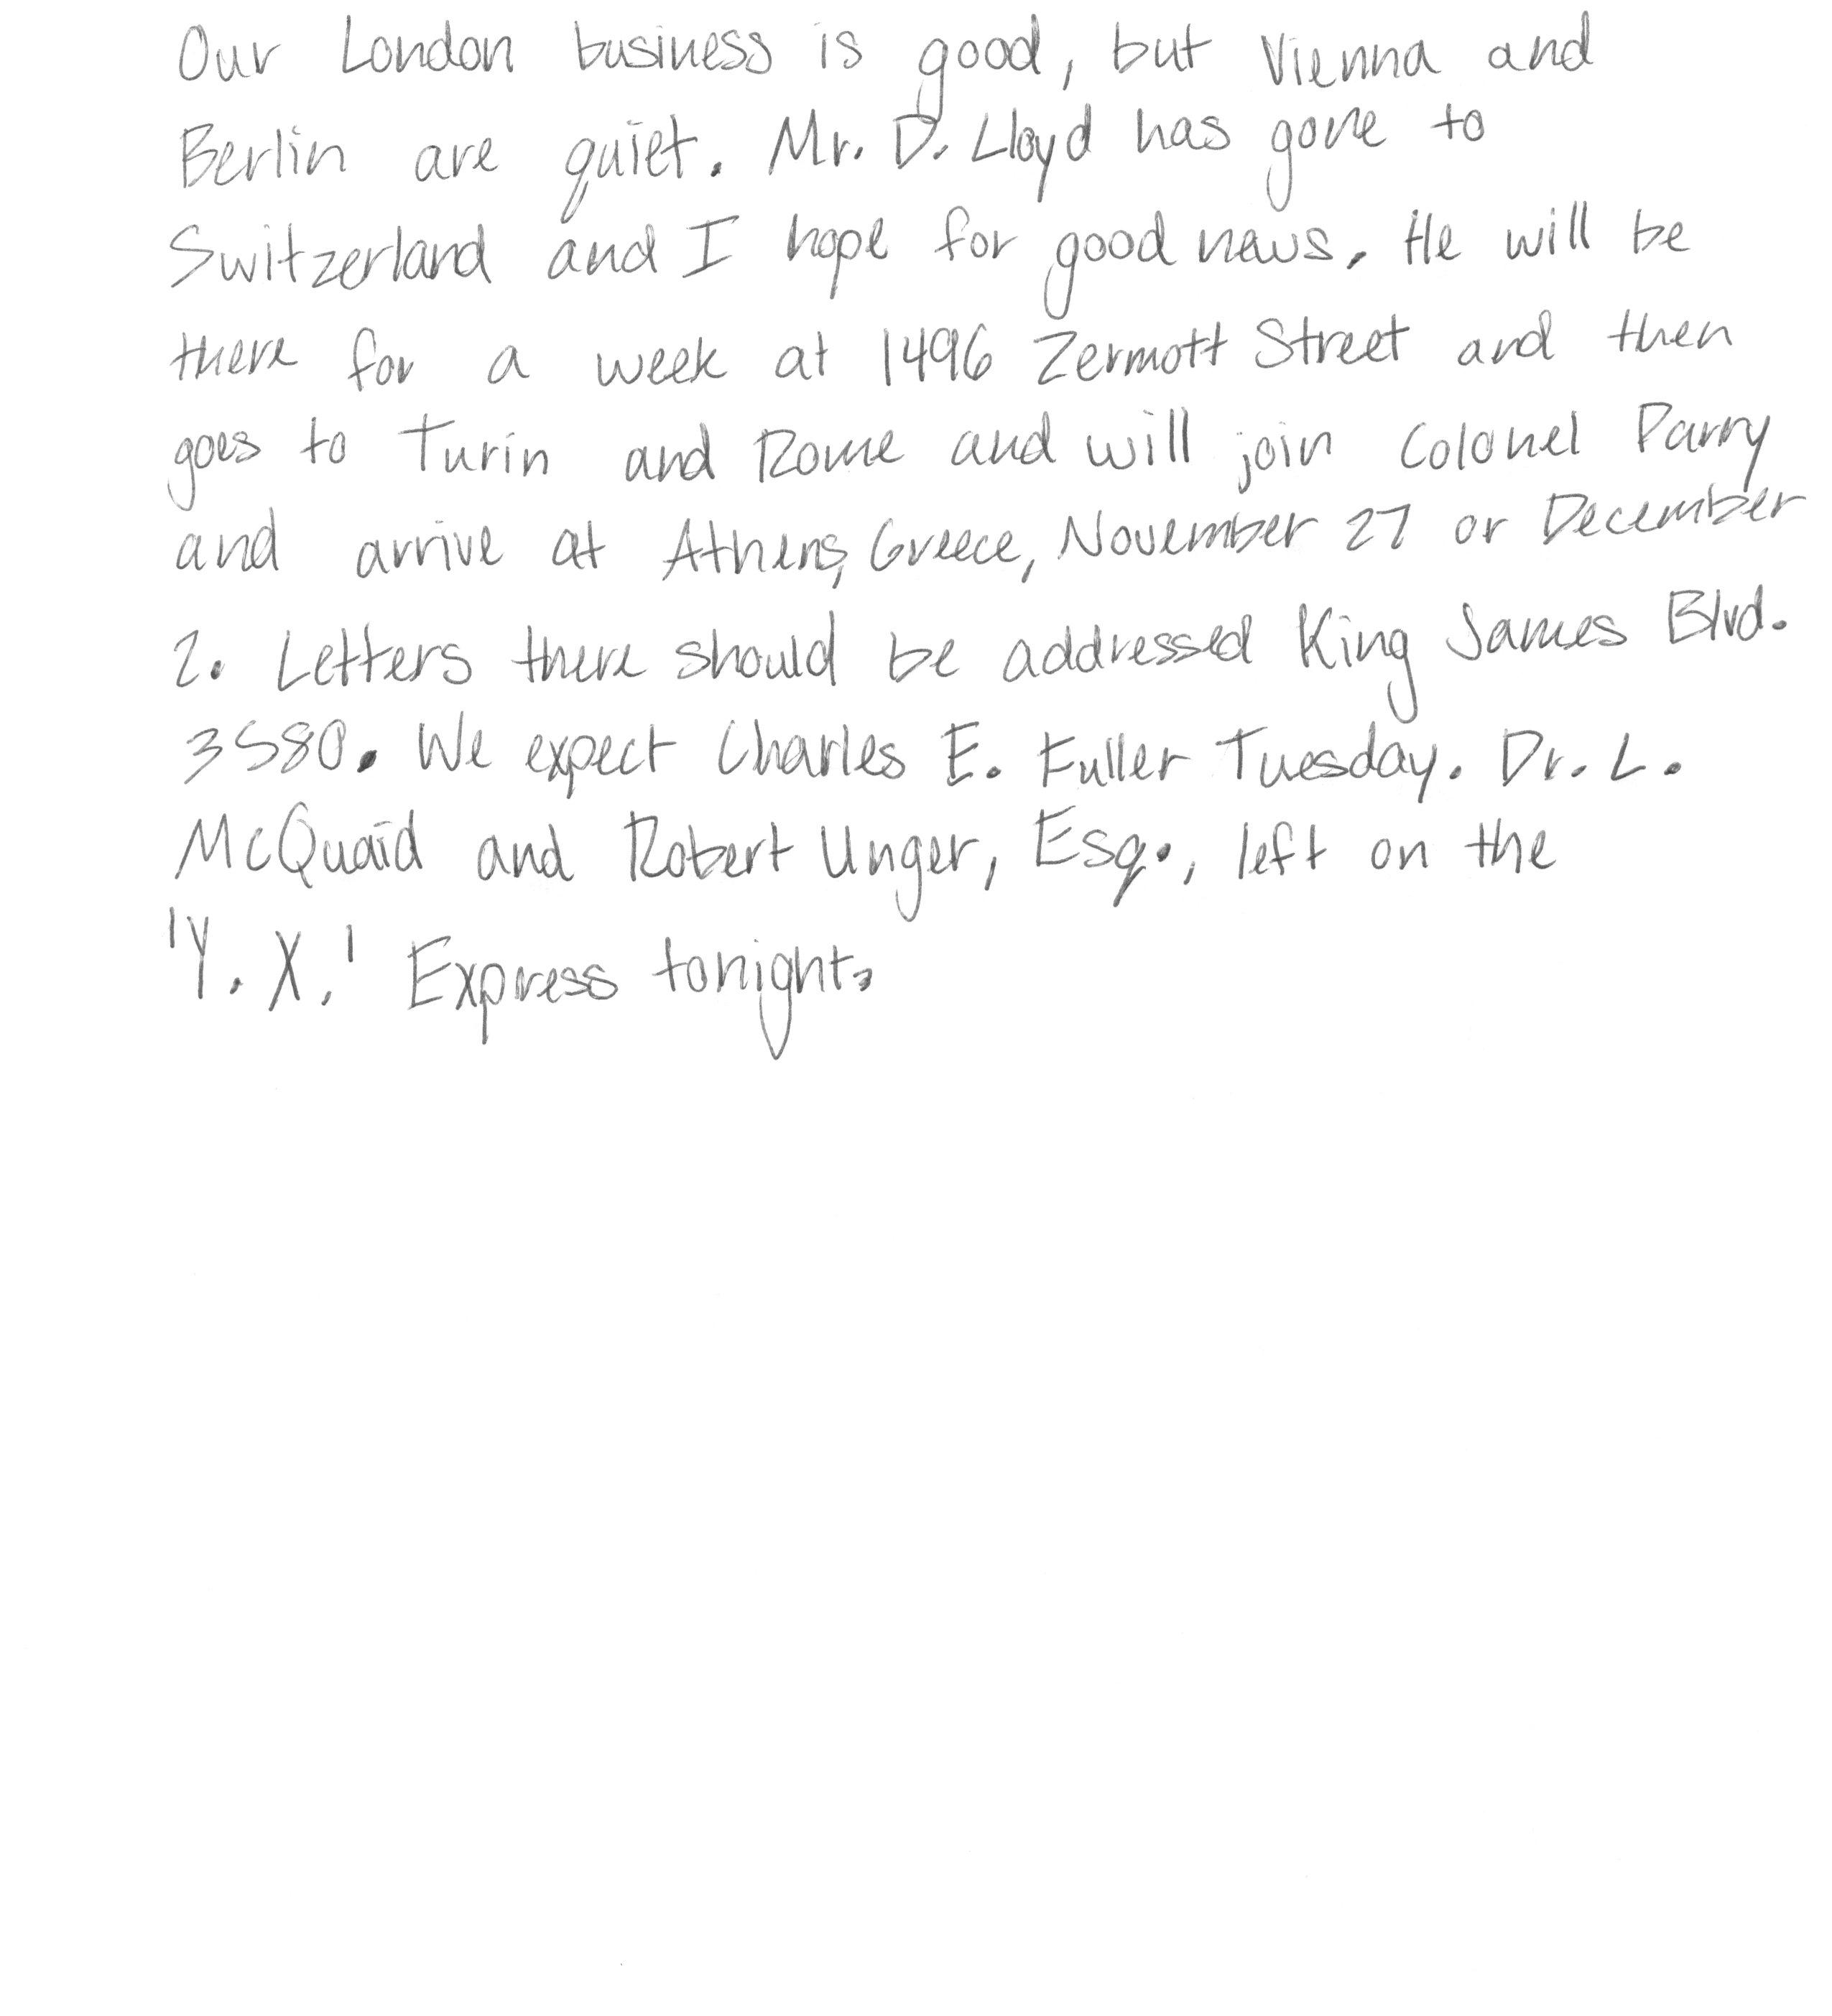 Our London business is good, but Vienna and
Berlin are quiet. Mr. D. Lloyd has gone to
Switzerland and I hope for good news. He will be
there for a week at 1496 Zermott Street and then
goes to Turin and Rome and will join Colonel Parry
and arrive at Athens, Greece, November 27 or December
2. Letters there should be addressed King James Blvd.
3580. We expect Charles E. Fuller Tuesday. Dr. L.
McQuaid and Robert Unger, Esq., left on the
'Y. X.' Express tonight.